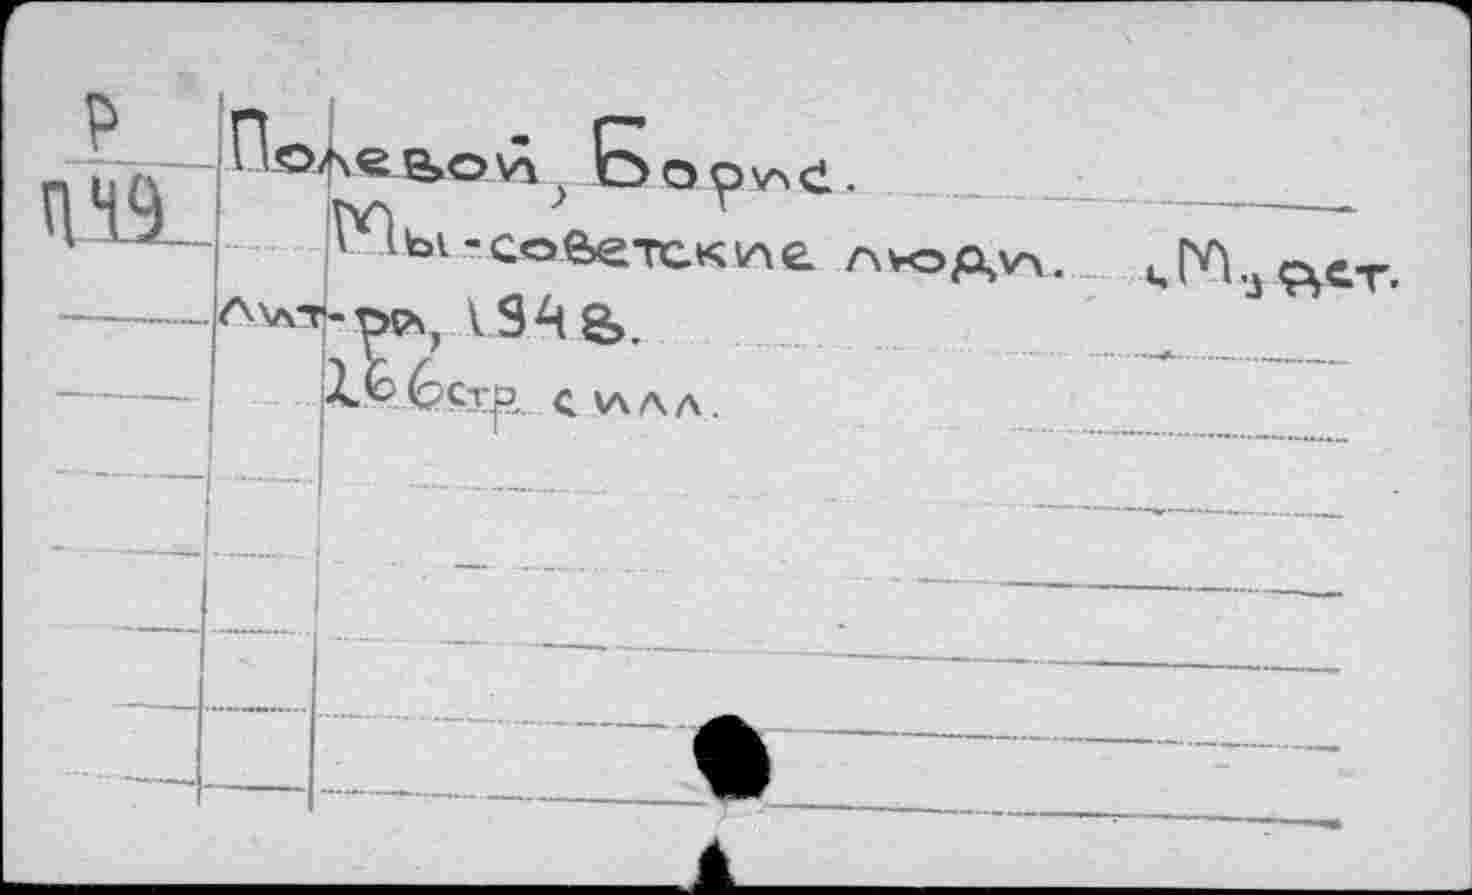 Р
П49
Полевой, Борис.
Мы - советские люди. М., дет.
лит-ра, 1948.
с илл.